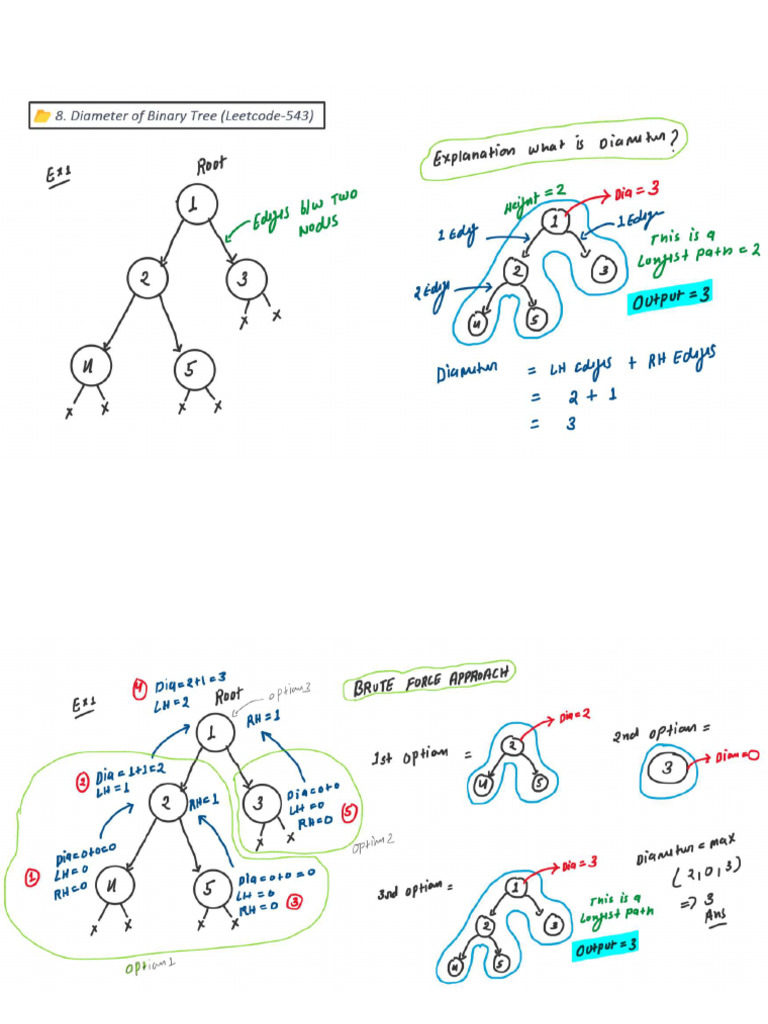 8. Diameter of Binary Tree (Leetcode-543)
Explanation what is Diameter?
Ex1
Root
1
Edges b/w Two
Nodes
2
3
x x
4
5
x x x x
Height = 2
Dia = 3
1 Edge
1
1 Edge
This is a
Longest Path = 2
2
3
2 Edge
Output = 3
4
5
Diameter = LH Edges + RH Edges
= 2 + 1
= 3
BRUTE FORCE APPROACH
Ex1
4 Dia = 2+1 = 3
LH = 2
Root
option 3
RH = 1
1
2 Dia = 1+1 = 2
LH = 1
2
RH = 1
3
Dia = 0+0
LH = 0
RH = 0 5
x x
option 2
1 Dia = 0+0=0
LH = 0
RH = 0
4
5
Dia = 0+0 = 0
LH = 0
RH = 0 3
x x x x
option 1
1st option =
2
Dia = 2
4
5
2nd option =
3
Diam = 0
3rd option =
1
Dia = 3
2
3
4
5
This is a
Longest Path
Output = 3
Diameter = max
(2,0,3)
=> 3
Ans